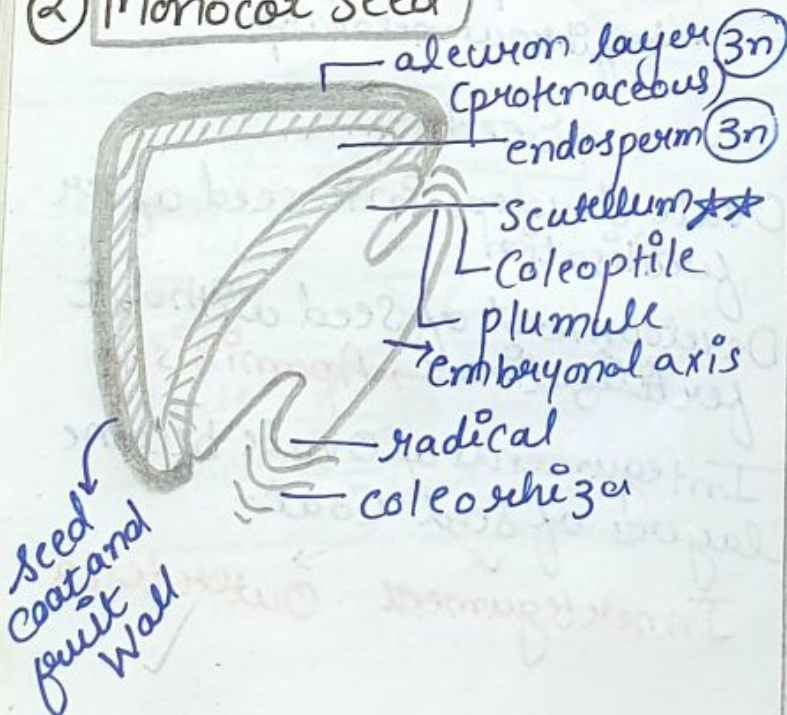 ② Monocot seed
aleuron layer 3n
(protenaceous)
endosperm 3n
scutellum☆☆
Coleoptile
plumule
embryonal axis
radical
coleorhiza
seed
coat and
fruit
Wall